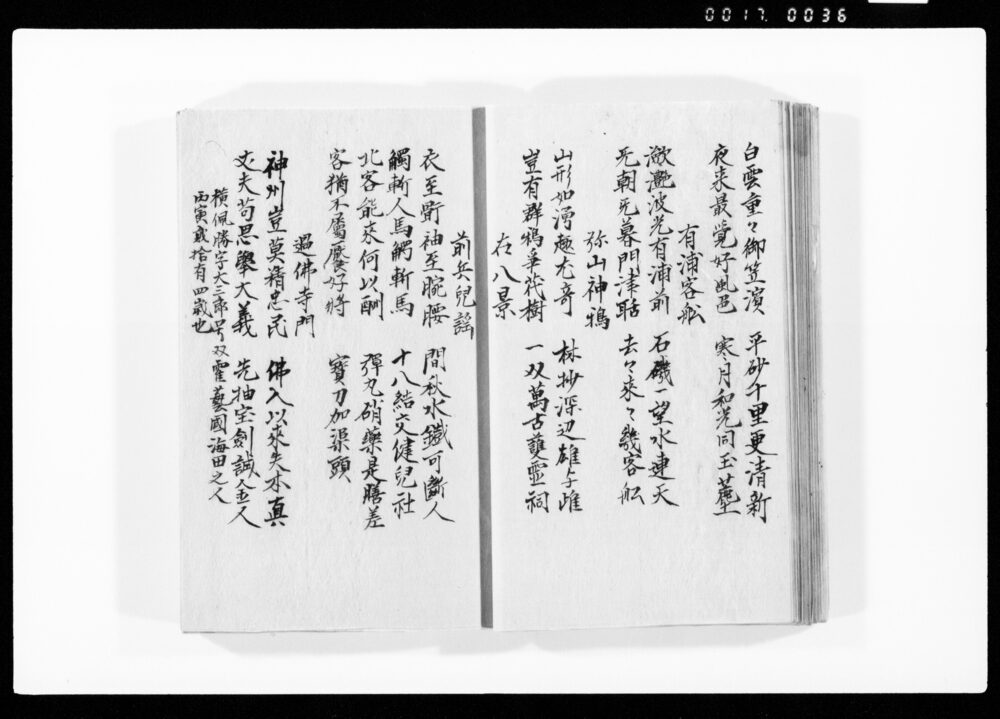 0017. 0036
白雲重々御笠濱 平砂千里更清新
夜来最覺好風色 寒月和光同玉塵
有浦客舩
瀲灔波光有浦前 石磯一望水連天
无朝无暮門津聒 去々来々幾客舩
弥山神鴉
山形如湧趣尤奇 林抄深辺雄与雌
豈有群鴉争茂樹 一双萬古護霊祠
在八景
前兵兒謡
衣至骭袖至腕腰 間秋水鐵可断人
觸斬人馬觸斬馬 十八結交健兒社
北客能来何以酬 弾丸硝藥是膳羞
客猶不屬饜好将 寶刀加渠頭
過佛寺門
神州豈莫精忠民 佛入以来失本真
丈夫苟思擧大義 先抽宝劍誠全人
横佩勝字大三郎号双霍藝國海田之人
丙寅歳拾有四歳也